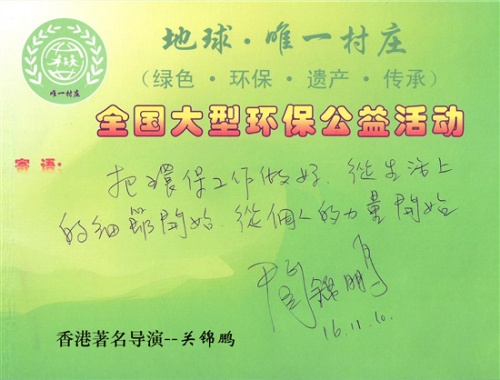 地球·唯一村庄
唯一村庄
（绿色·环保·遗产·传承）
全国大型环保公益活动
寄语：
把環保工作做好．從生活上
的细節開始．從個人的力量開始
關錦鹏
16.11.10.
香港著名导演--关锦鹏